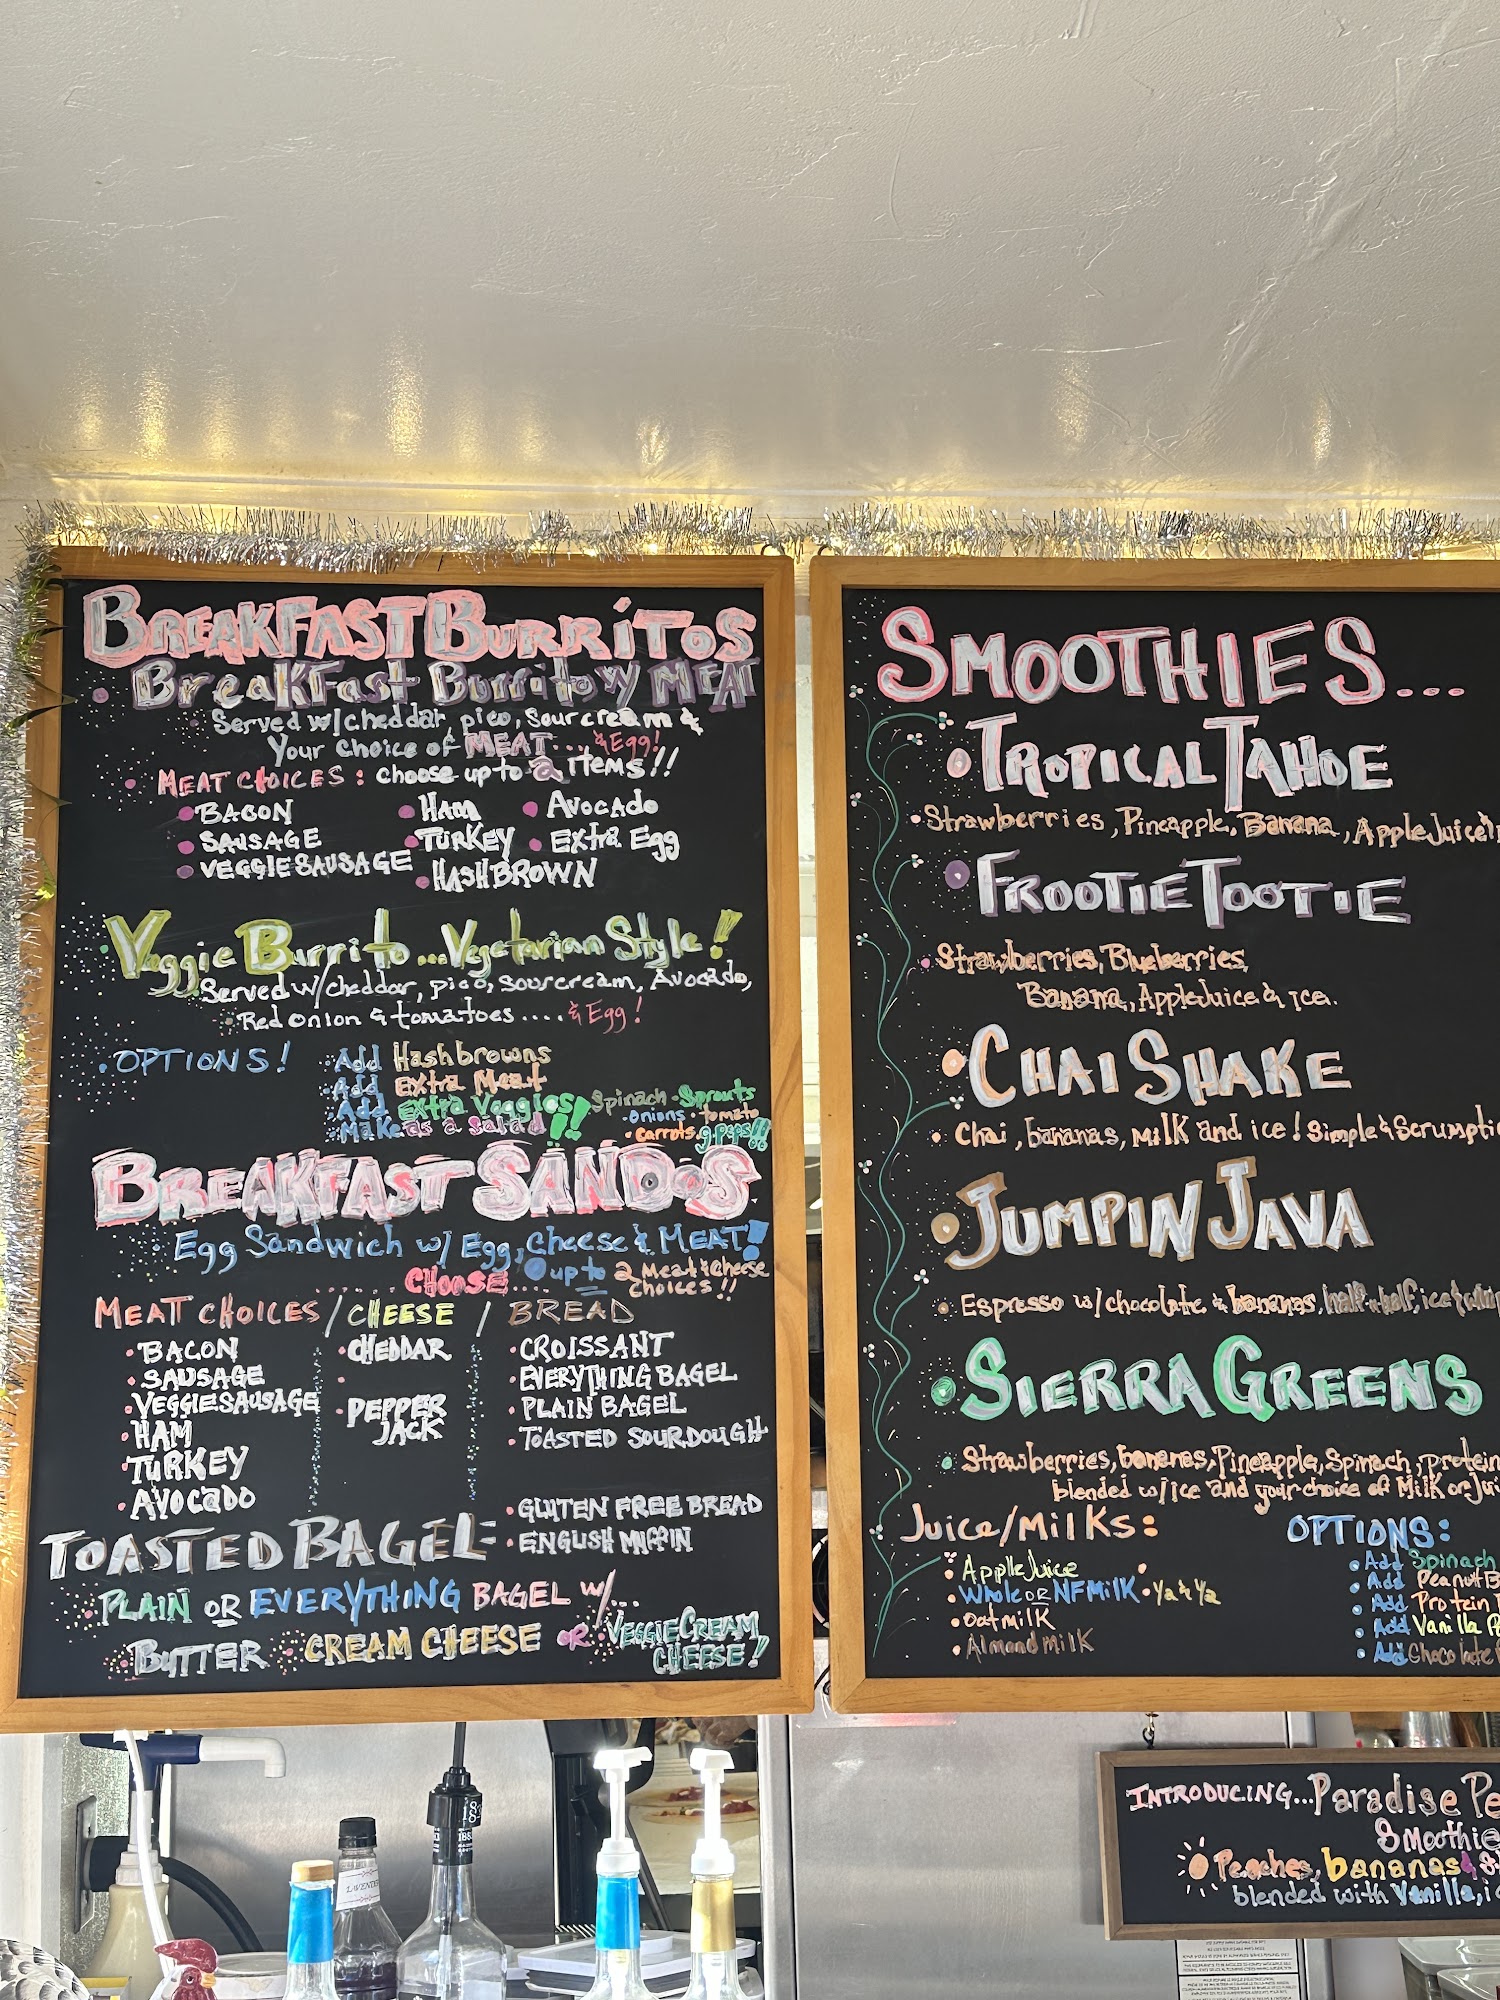 BREAKFAST BURRITOS
Breakfast Burrito w/ MEAT
Served w/cheddar, pico, sour cream &
Your choice of MEAT... & Egg!
MEAT CHOICES: choose up to 2 items!!
BACON HAM AVOCADO
SAUSAGE TURKEY EXTRA Egg
VEGGIE SAUSAGE HASHBROWN
Veggie Burrito...Vegetarian Style!
Served w/cheddar, pico, sour cream, Avocado,
Red onion & tomatoes.... & Egg!
OPTIONS! Add Hashbrowns
Add Extra Meat
Add Extra Veggies Spinach Sprouts
Make as a salad!! onions tomato
carrots g.peps!!
BREAKFAST SANDOS
Egg Sandwich w/ Egg, Cheese & MEAT!
CHOOSE.... up to 2 Meat & Cheese
choices!!
MEAT CHOICES / CHEESE / BREAD
BACON CHEDDAR CROISSANT
SAUSAGE EVERYTHING BAGEL
VEGGIE SAUSAGE PEPPER PLAIN BAGEL
HAM JACK TOASTED SOURDOUGH
TURKEY
AVOCADO GLUTEN FREE BREAD
TOASTED BAGEL ENGLISH MUFFIN
PLAIN OR EVERYTHING BAGEL w/...
BUTTER CREAM CHEESE OR VEGGIE CREAM
CHEESE!
SMOOTHIES...
TROPICAL TAHOE
Strawberries, Pineapple, Banana, Apple Juice
FROOTIE TOOTIE
Strawberries, Blueberries,
Banana, Apple Juice & ice.
CHAI SHAKE
Chai, bananas, milk and ice! Simple & Scrumpti
JUMPIN JAVA
Espresso w/chocolate & bananas, half n half, ice &
SIERRA GREENS
Strawberries, bananas, Pineapple, Spinach, protein
blended w/ice and your choice of Milk or Jui
Juice/Milks: OPTIONS:
Apple Juice Add Spinach
Whole OR NF Milk 1/2 & 1/2 Add Peanut B
Oat milk Add Protein
Almond milk Add Vanilla P
Add Chocolate
INTRODUCING... Paradise Pe
Smoothie
Peaches, bananas &
blended with Vanilla, i
LAVENDER
1883